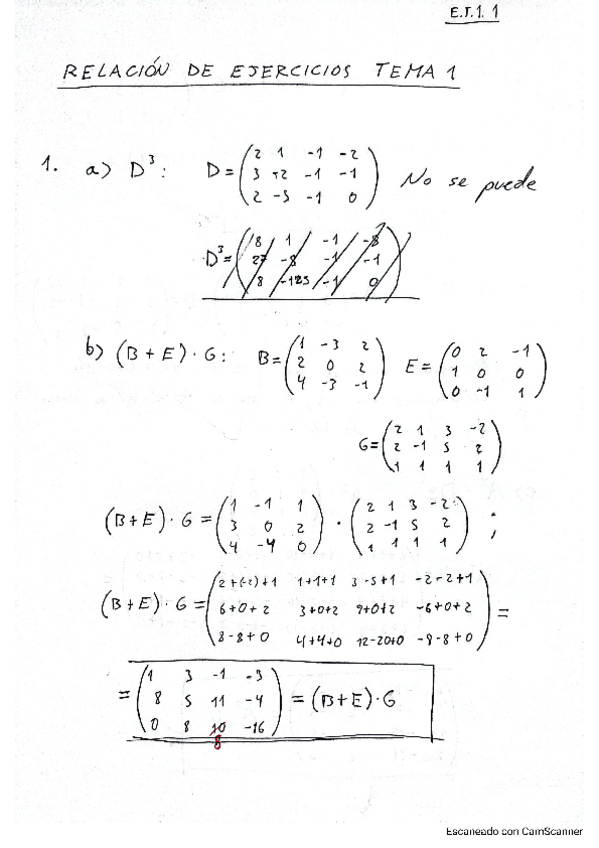 E.T.1. 1
RELACIÓN DE EJERCICIOS TEMA 1
1. a) D³: D = (2 1 -1 -2
3 +2 -1 -1
2 -5 -1 0) No se puede
D³ = (8 1 -1 -8
27 -8 -1 -1
8 -125 -1 0)
b) (B + E) · G: B = (1 -3 2
2 0 2
4 -3 -1) E = (0 2 -1
1 0 0
0 -1 1)
G = (2 1 3 -2
2 -1 5 2
1 1 1 1)
(B+E) · G = (1 -1 1
3 0 2
4 -4 0) · (2 1 3 -2
2 -1 5 2
1 1 1 1) ;
(B+E) · G = (2+(-2)+1 1+1+1 3-5+1 -2-2+1
6+0+2 3+0+2 9+0+2 -6+0+2
8-8+0 4+4+0 12-20+0 -8-8+0) =
= (1 3 -1 -3
8 5 11 -4
0 8 10 -16) = (B+E) · G
8
Escaneado con CamScanner